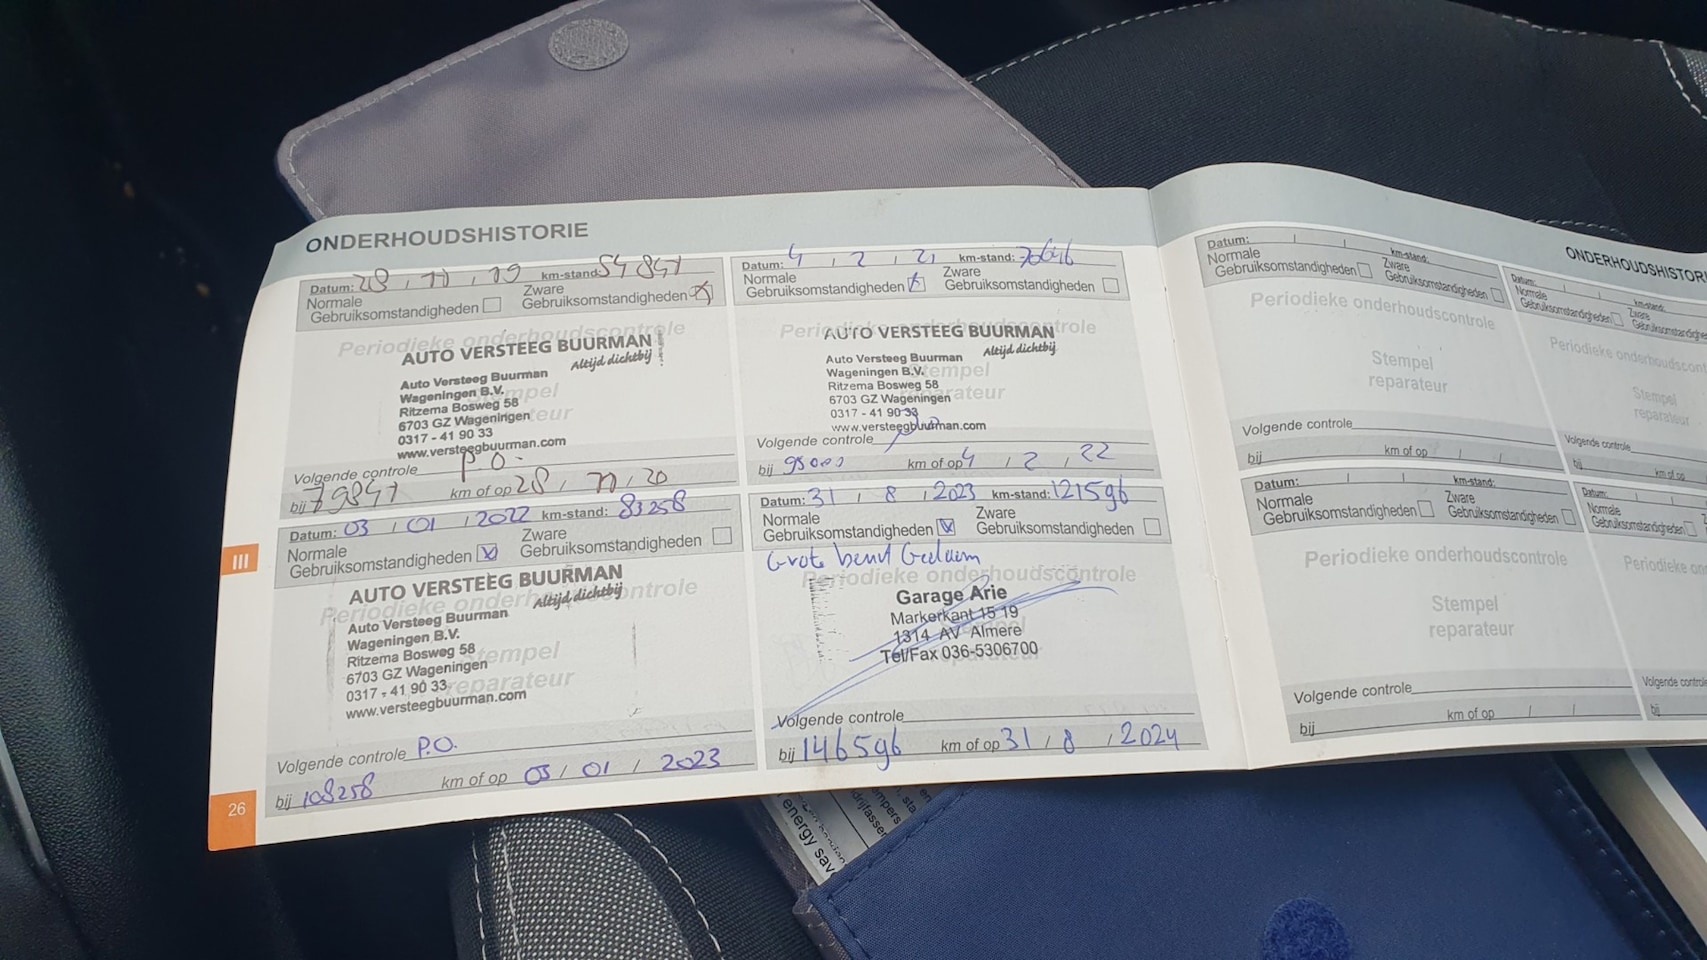 ONDERHOUDSHISTORIE
Datum: 28 / 11 / 19 km-stand: 54847
Normale Gebruiksomstandigheden
Zware Gebruiksomstandigheden
Periodieke onderhoudscontrole
AUTO VERSTEEG BUURMAN
Altijd dichtbij
Auto Versteeg Buurman
Wageningen B.V.
Ritzema Bosweg 58
6703 GZ Wageningen
0317 - 41 90 33
www.versteegbuurman.com
Volgende controle P.O.
bij 79847 km of op 28 / 11 / 20
Datum: 4 / 2 / 21 km-stand:
Normale Gebruiksomstandigheden
Zware Gebruiksomstandigheden
Periodieke onderhoudscontrole
AUTO VERSTEEG BUURMAN
Altijd dichtbij
Auto Versteeg Buurman
Wageningen B.V.
Ritzema Bosweg 58
6703 GZ Wageningen
0317 - 41 90 33
www.versteegbuurman.com
Volgende controle
bij 95000 km of op 4 / 2 / 22
Datum: 03 / 01 / 2022 km-stand: 83258
Normale Gebruiksomstandigheden
Zware Gebruiksomstandigheden
Periodieke onderhoudscontrole
Stempel reparateur
AUTO VERSTEEG BUURMAN
Altijd dichtbij
Auto Versteeg Buurman
Wageningen B.V.
Ritzema Bosweg 58
6703 GZ Wageningen
0317 - 41 90 33
www.versteegbuurman.com
Volgende controle P.O.
bij 108258 km of op 03 / 01 / 2023
Datum: 31 / 8 / 2023 km-stand: 121596
Normale Gebruiksomstandigheden
Zware Gebruiksomstandigheden
Grote beurt Gedaan
Periodieke onderhoudscontrole
Garage Arie
Markerkant 15 19
1314 AV Almere
Tel/Fax 036-5306700
Volgende controle
bij 146596 km of op 31 / 8 / 2024
III
26
ONDERHOUDSHISTOR
Datum: km-stand:
Normale Gebruiksomstandigheden
Zware Gebruiksomstandigheden
Periodieke onderhoudscontrole
Stempel
reparateur
Volgende controle
bij km of op
Datum: km-stand:
Normale Gebruiksomstandigheden
Zware Gebruiksomstandighe
Periodieke onderhoudscont
Stempel
reparateur
Volgende controle
bij km of op
Datum: km-stand:
Normale Gebruiksomstandigheden
Zware Gebruiksomstandigheden
Periodieke onderhoudscontrole
Stempel
reparateur
Volgende controle
bij km of op
Datum:
Normale Gebruiksomstandigheden
Periodieke on
Volgende control
bij
energy sav